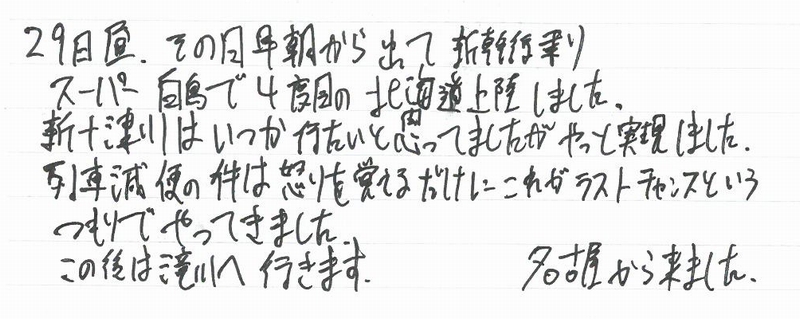 29日昼、その日早朝から出て新幹線乗り
スーパー白鳥で4度目の北海道上陸しました。
新十津川はいつか行たいと思ってましたがやっと実現しました。
列車減便の件は怒りを覚えるだけにこれがラストチャンスという
つもりでやってきました。
この後は滝川へ行きます。 名古屋から来ました。